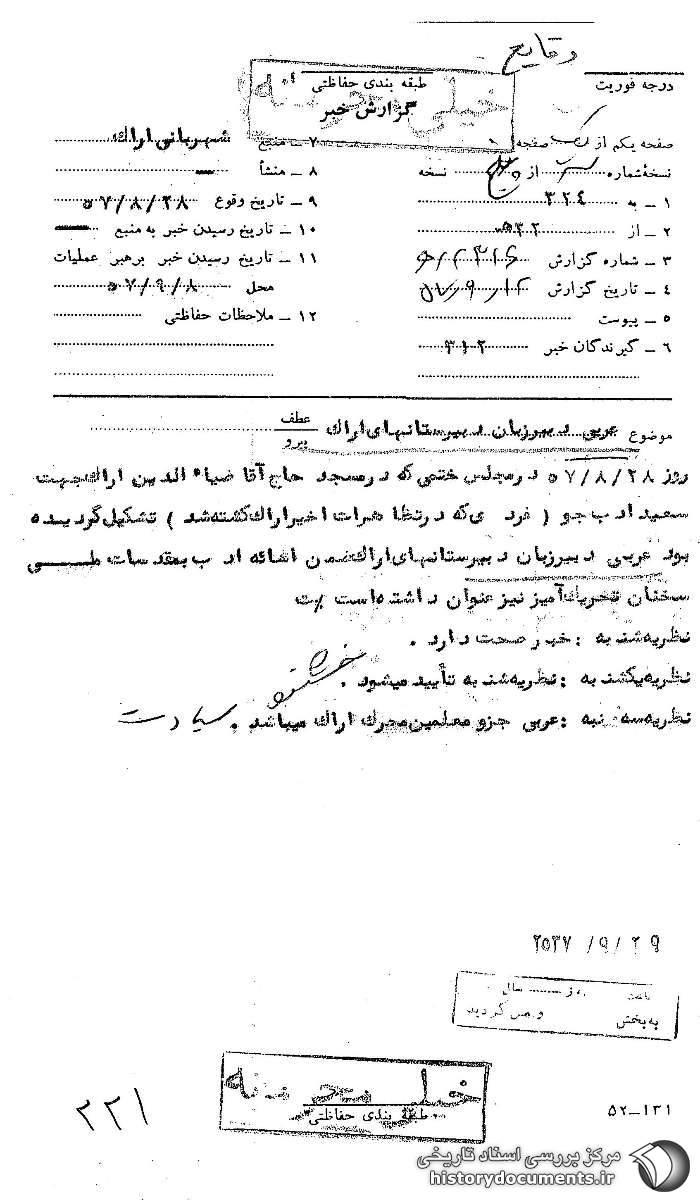 وقایع
درجه فوریت
طبقه بندی حفاظتی
خیلی محرمانه
گزارش خبر
صفحه یکم از یک صفحه
نسخهٔ شماره از نسخه
۱ ـ به ۳۲٤
۲ ـ از ۵۳۲
۳ ـ شماره گزارش
٤ ـ تاریخ گزارش
۵ ـ پیوست
٦ ـ گیرندگان خبر ۳۱۲
۷ ـ منبع شهربانی اراک
۸ ـ منشأ ـ
۹ ـ تاریخ وقوع ۵۷/۸/۲۸
۱۰ ـ تاریخ رسیدن خبر به منبع ـ
۱۱ ـ تاریخ رسیدن خبر برهبر عملیات
محل ۵۷/۹/۸
۱۲ ـ ملاحظات حفاظتی
موضوع عربی دبیر زبان دبیرستانهای اراک
عطف
پیرو
روز ۵۷/۸/۲۸ در مجلس ختمی که در مسجد حاج آقا ضیاء الدین اراک جهت
سعید ادب جو ( فردی که در تظاهرات اخیر اراک کشته شد ) تشکیل گردیده
بود عربی دبیر زبان دبیرستانهای اراک ضمن اسائه ادب بمقدسات ملی
سخنان تحریک آمیز نیز عنوان داشته است
نظریه شنبه : خبر صحت دارد .
نظریه یکشنبه : نظریه شنبه تأیید میشود .
نظریه سه شنبه : عربی جزو معلمین محرک اراک میباشد . سیادت
۲۵۳۷/۹/۲۹
سال
به بخش
گردید
خیلی محرمانه
طبقه بندی حفاظتی
۲۲۱
۵۲ـ۱۳۱
مرکز بررسی اسناد تاریخی
historydocuments.ir